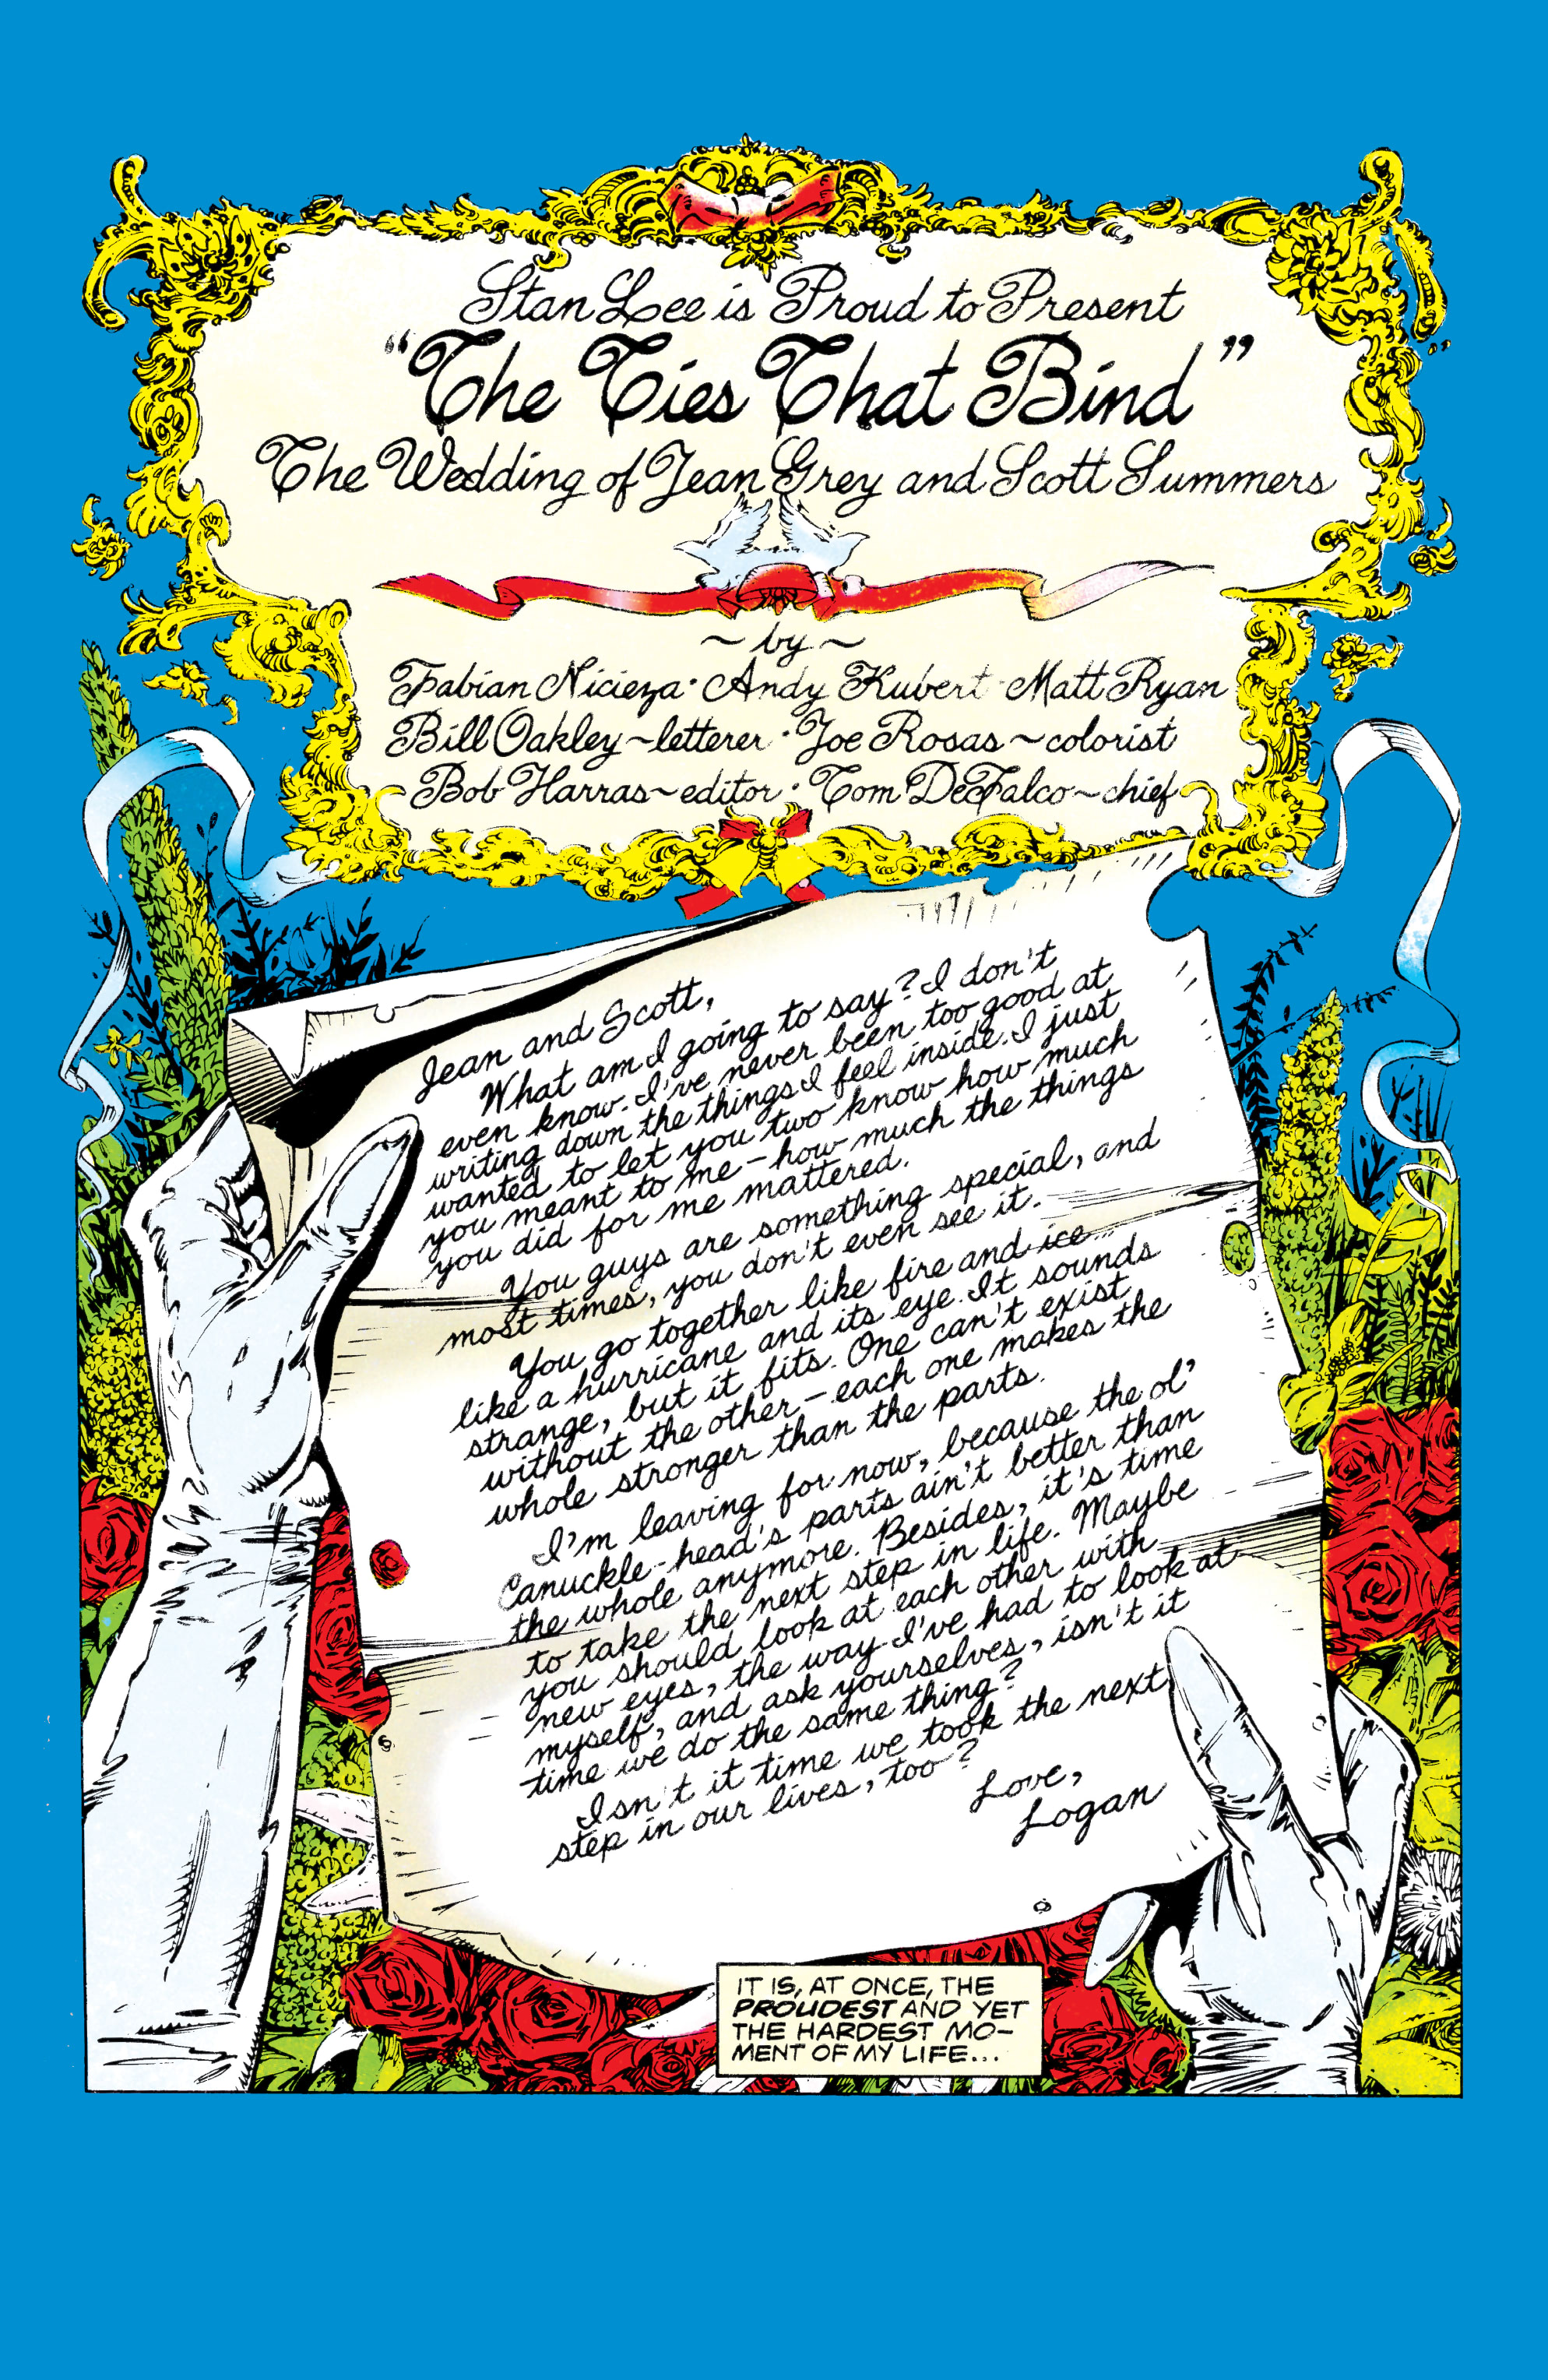 Stan Lee is Proud to Present
"The Ties That Bind"
The Wedding of Jean Grey and Scott Summers
~ by ~
Fabian Nicieza · Andy Kubert · Matt Ryan
Bill Oakley ~ letterer · Joe Rosas ~ colorist
Bob Harras ~ editor · Tom DeFalco ~ chief
Jean and Scott,
What am I going to say? I don't
even know. I've never been too good at
writing down the things I feel inside. I just
wanted to let you two know how much
you meant to me - how much the things
you did for me mattered.
You guys are something special, and
most times, you don't even see it.
You go together like fire and ice...
like a hurricane and its eye. It sounds
strange, but it fits. One can't exist
without the other - each one makes the
whole stronger than the parts.
I'm leaving for now, because the ol'
Canuckle-head's parts ain't better than
the whole anymore. Besides, it's time
to take the next step in life. Maybe
you should look at each other with
new eyes, the way I've had to look at
myself, and ask yourselves, isn't it
time we do the same thing?
Isn't it time we took the next
step in our lives, too?
Love,
Logan
IT IS, AT ONCE, THE
PROUDEST AND YET
THE HARDEST MO-
MENT OF MY LIFE...